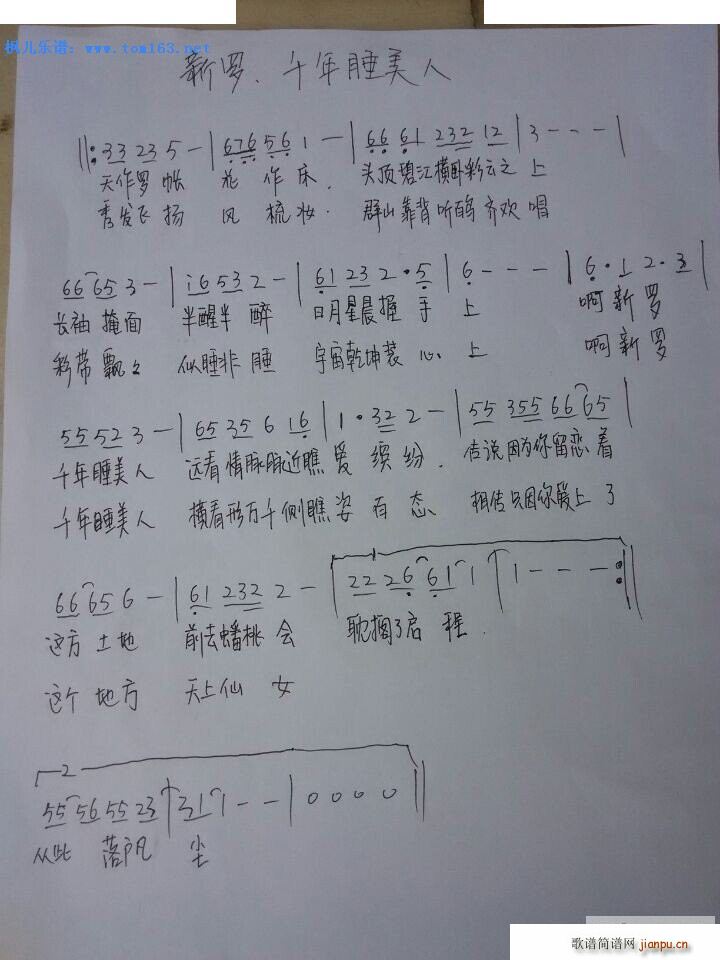 枫儿乐谱: www.tom163.net
新罗、千年睡美人
||: 33 23 5 - | 676 56 1 - | 66 61 232 12 | 3 - - - |
天作罗帐 花作床. 头顶碧江横卧彩云之上
秀发飞扬 风梳妆. 群山靠背听鸟齐欢唱
66 65 3 - | i6 53 2 - | 61 23 2·5 | 6 - - - | 6·1 2·3 |
长袖掩面 半醒半醉 日月星晨握手上 啊新罗
彩带飘飘 似睡非睡 宇宙乾坤装心上 啊新罗
55 52 3 - | 65 35 6 16 | 1·32 2 - | 55 355 66 65 |
千年睡美人 远看情脉脉近瞧爱缤纷. 传说因为你留恋着
千年睡美人 横看形万千侧瞧姿有态 相传只因你爱上了
66 65 6 - | 61 232 2 - | 22 26 61 1 | 1 - - - :||
这方土地 前去蟠桃会 耽搁了启程.
这个地方 天上仙女
2
55 56 55 23 | 31 1 - - | 0 0 0 0 ||
从此 落户凡尘
歌谱简谱网
jianpu.cn